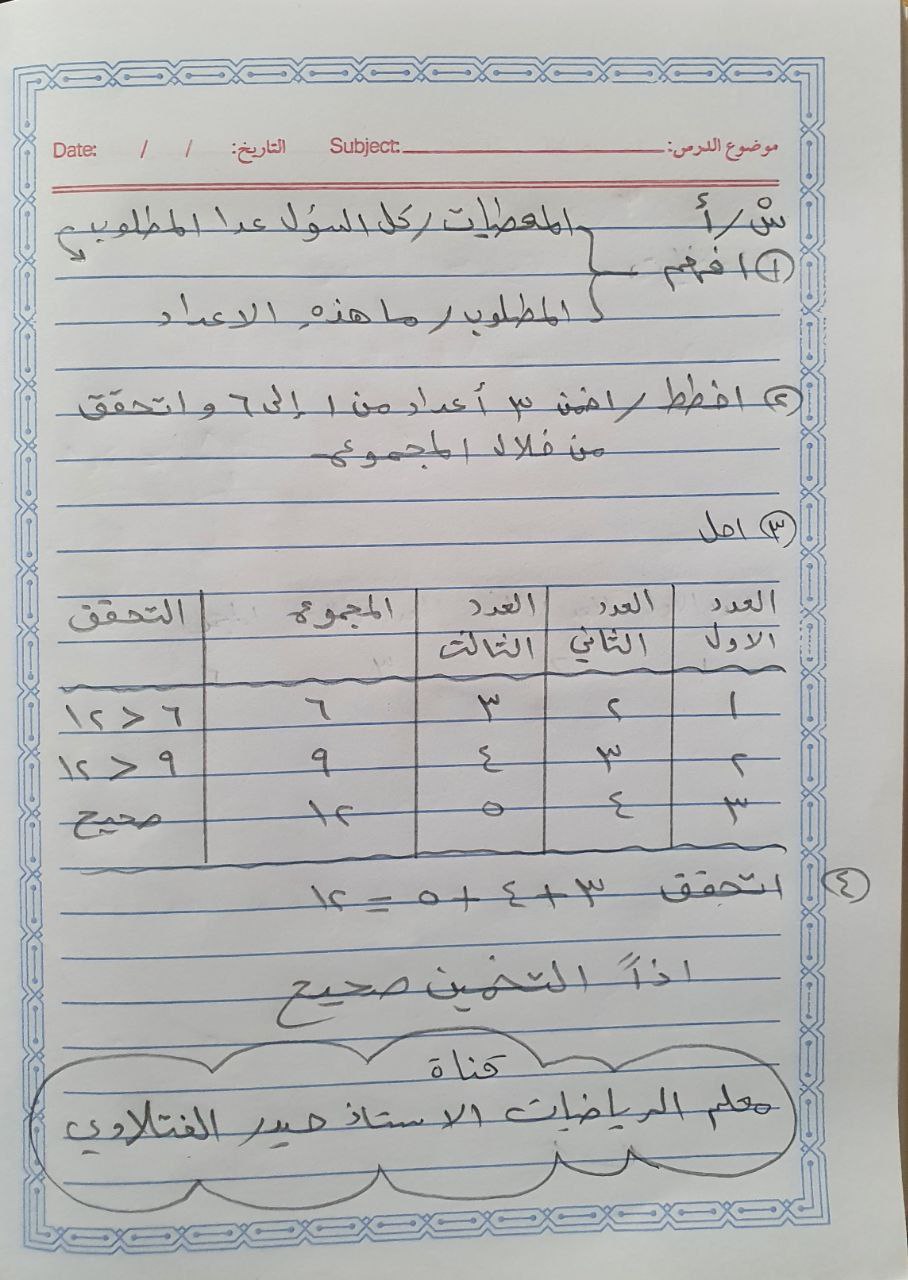 موضوع الدرس: Subject: التاريخ: / / Date:
س/أ
المعطيات/ كل السؤل عدا المطلوب
① افهم
المطلوب/ ما هذهِ الاعداد
② اخطط/ اخمن ٣ أعداد من ١ إلى ٦ و اتحقق
من خلال المجموع
③ احل
العدد العدد العدد المجموع التحقق
الاول الثاني الثالث
١ ٢ ٣ ٦ ٦ > ١٢
٢ ٣ ٤ ٩ ٩ > ١٢
٣ ٤ ٥ ١٢ صحيح
④ اتحقق ٣ + ٤ + ٥ = ١٢
اذاً التخمين صحيح
قناة
معلم الرياضيات الاستاذ حيدر الفتلاوي